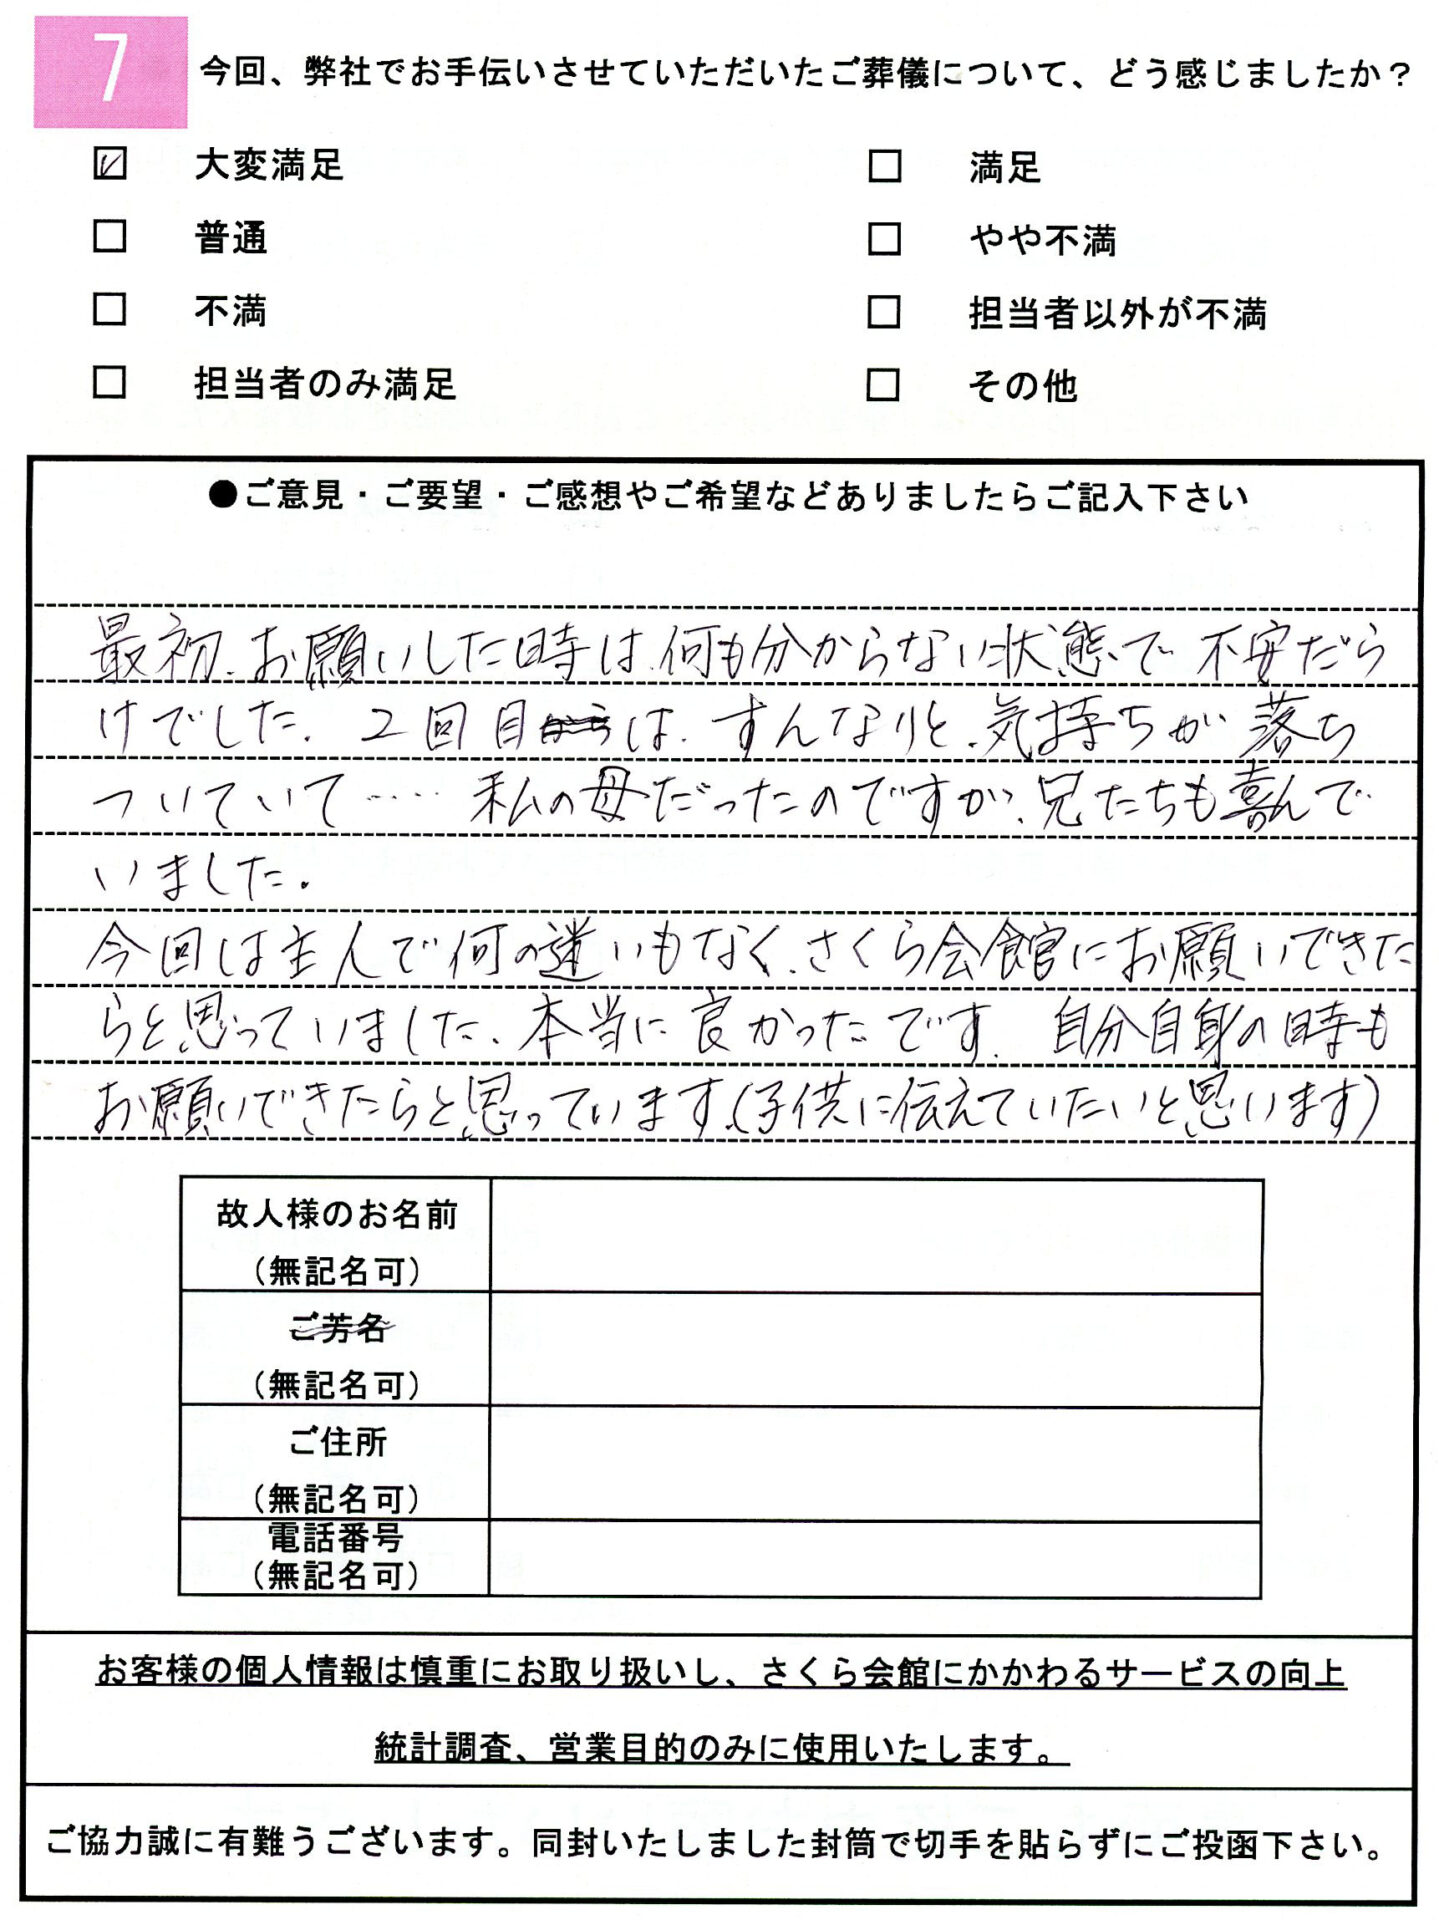 7
今回、弊社でお手伝いさせていただいたご葬儀について、どう感じましたか？
大変満足
満足
普通
やや不満
不満
担当者以外が不満
担当者のみ満足
その他
●ご意見・ご要望・ご感想やご希望などありましたらご記入下さい
最初、お願いした時は、何も分からない状態で不安だら
けでした。２回目からは、すんなりと、気持ちが落ち
ついていて‥‥ 私の母だったのですが、兄たちも喜んで
いました。
今回は主人で何の迷いもなく、さくら会館にお願いできた
らと思っていました、本当に良かったです。自分自身の時も
お願いできたらと思っています、(子供に伝えていたいと思います)
故人様のお名前
(無記名可)
ご芳名
(無記名可)
ご住所
(無記名可)
電話番号
(無記名可)
お客様の個人情報は慎重にお取り扱いし、さくら会館にかかわるサービスの向上
統計調査、営業目的のみに使用いたします。
ご協力誠に有難うございます。同封いたしました封筒で切手を貼らずにご投函下さい。